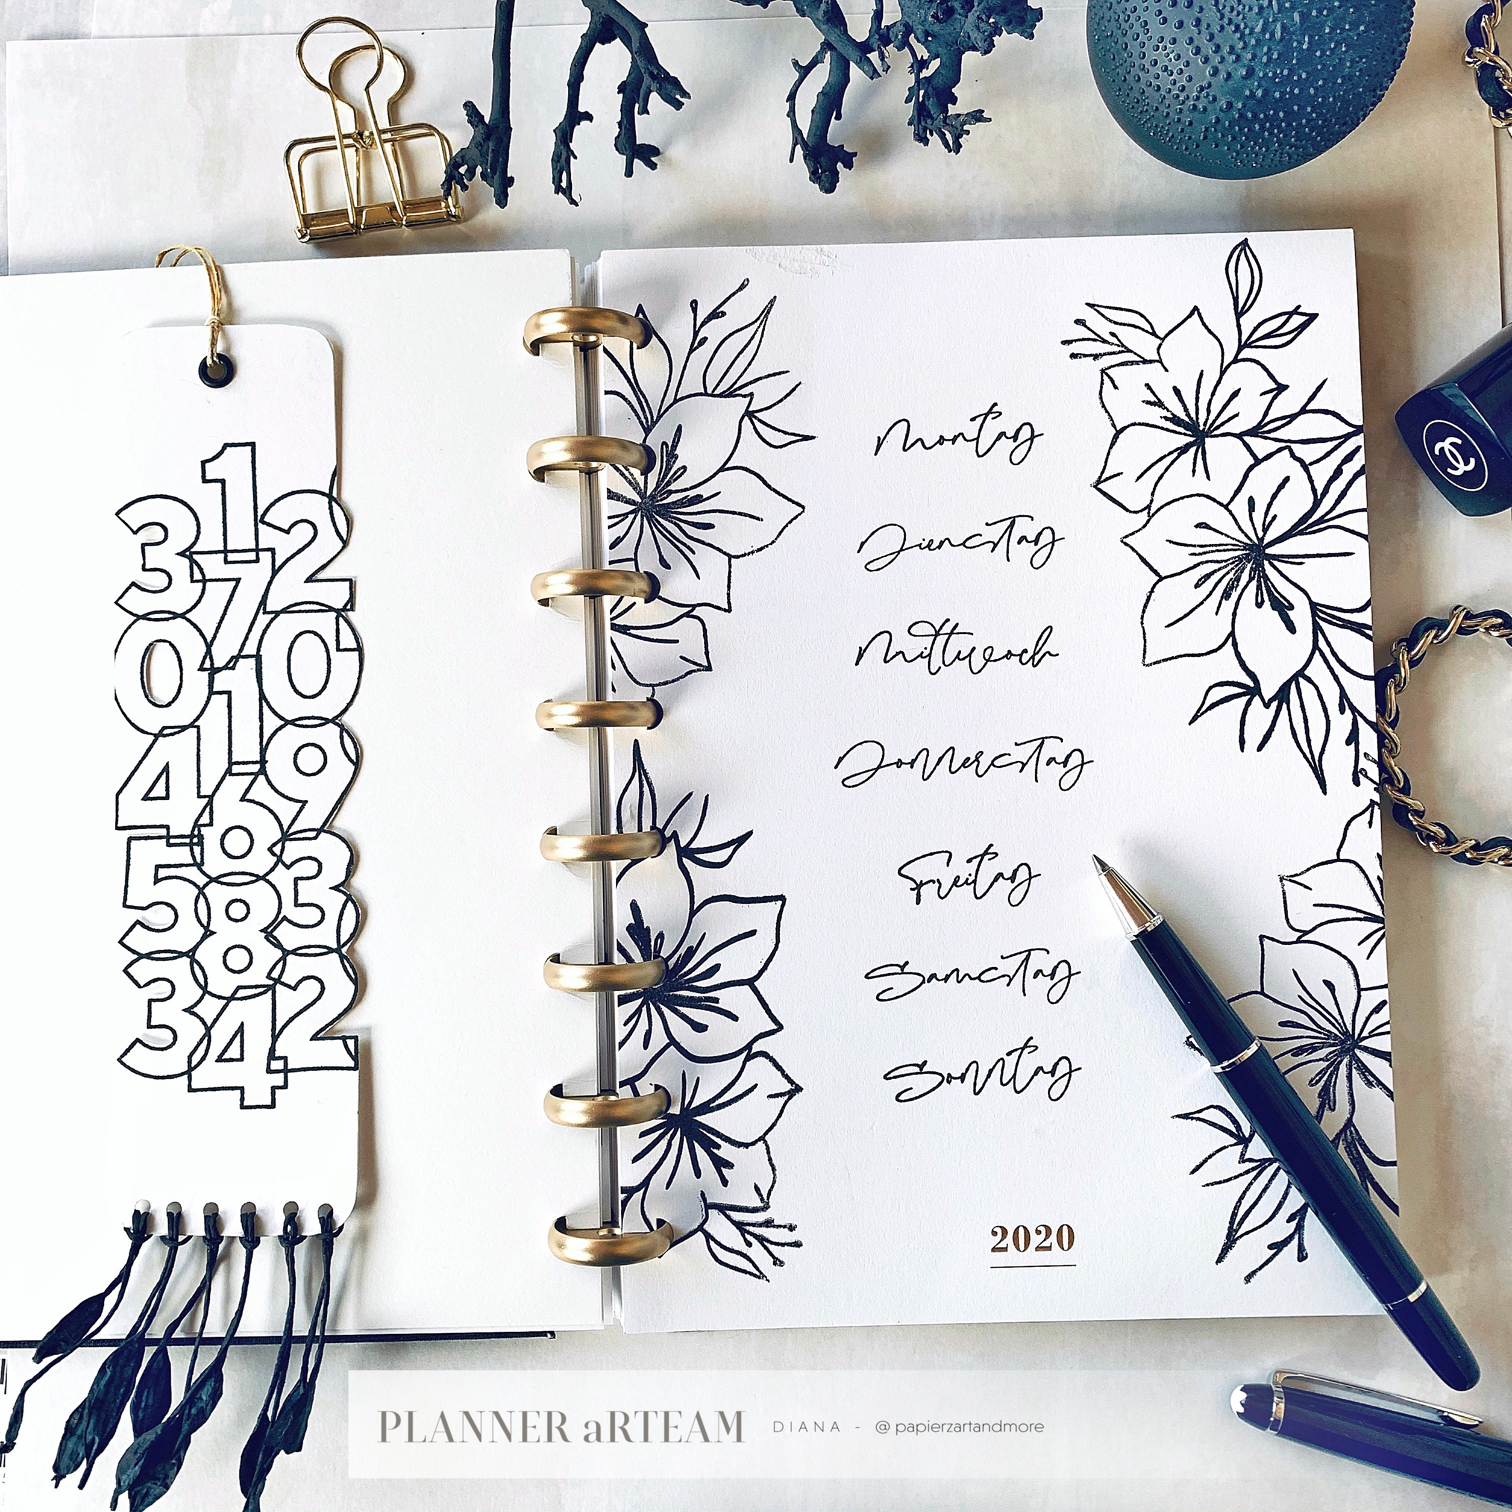 1
3 2
7
0 0
1
4 9
6
5 3
8
8
3 2
4
Montag
Dienstag
Mittwoch
Donnerstag
Freitag
Samstag
Sonntag
2020
PLANNER aRTEAM DIANA - @papierzartandmore